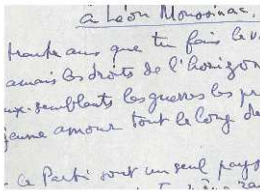 à Léon Moussinac.
trente ans que tu fais le v
amais les droits de l'horizon
ux-semblants les guerres les pr
jeune amour tout le long de
ce Parti sont un seul pays